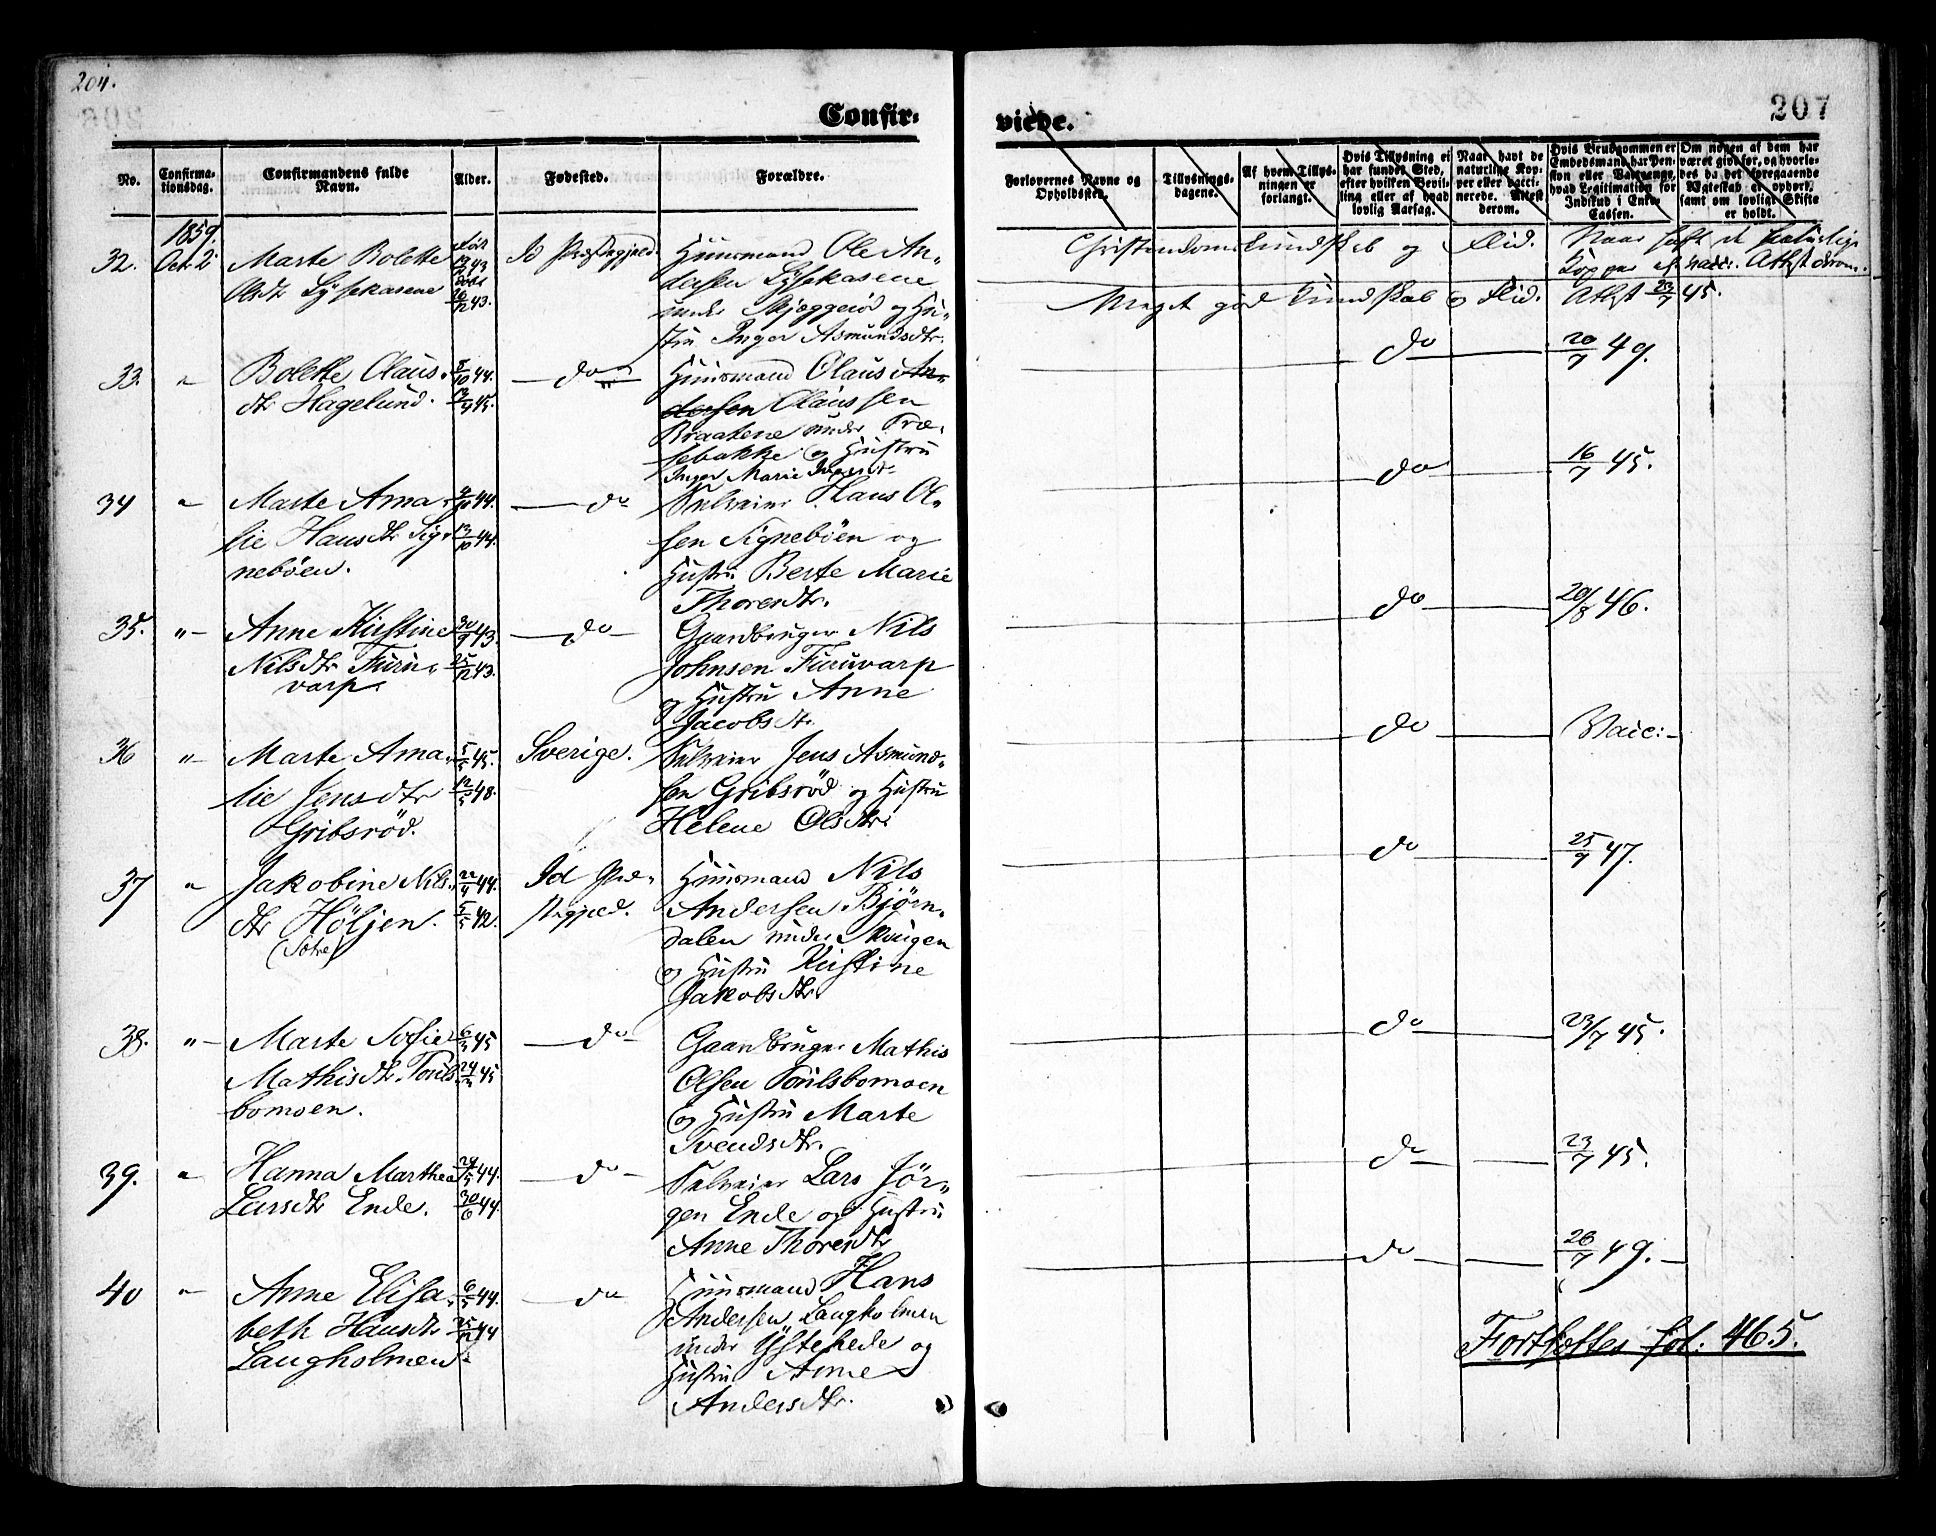 204.
207
Confir-
viede.
No.
Confirma-
tionsdag.
Confirmandens fulde
Navn.
Alder.
Fødested.
Forældre.
Forlovernes Navne og
Opholdssted.
Tillysnings-
dagene.
Af hvem Tillys-
ningen er
forlangt.
Hvis Tillysning ei
har fundet Sted,
efter hvilken Bevil-
ling eller af hvad
lovlig Aarsag.
Naar havt de
naturlige Kop-
per eller vacci-
nerede. Attest
derom.
Hvis Brudgommen er
Embedsmand, har Pen-
sion eller Vartpenge,
hvad Legitimation for
Indskud i Enke-
Cassen.
Om nogen af dem har
været gift før, og hvorle-
des da det foregaaende
Ægteskab er ophørt,
samt om lovligt Skifte
er holdt.
1859.
32. Oct. 2 Marte Bolette
Olsdtr Lysekasene
født
13/12 43
døbt
26/12 43.
Id Præstegjeld.
Huusmand Ole An-
dersen Lysekasene
under Skjeggerød og Hu-
stru Inger Asmundsdtr.
Christendomskundskab og Flid.
Naar haft de naturlige
Kopper el. vacc: Attest derom.
Meget god Kundskab og Flid. Attest 23/7 45.
33. " Bolette Claus-
dtr Hagelund.
5/10 44.
13/4 45.
do
Huusmand Claus An-
dersen Claussen
Braatene under Træ-
sebakke og Hustru
Inger Marie
do 20/7 49.
34 " Marte Ama-
lie Hansdtr Sig-
nebøen.
4/10 44.
13/10 44.
do
Selveier Hans Ol-
sen Signebøen og
Hustru Berte Marie
Thoresdtr.
do 16/7 45.
35. " Anne Kirstine
Nilsdtr Furu-
varp.
30/9 43.
25/12 43.
do
Gaardbruger Nils
Johnsen Furuvarp
og Hustru Anne
Jacobsdtr.
do 20/8 46.
36 " Marte Ama-
lie Jensdtr
Gribsrød.
5/5 45.
12/5 48.
Sverige.
Selveier Jens Asmund-
sen Gribsrød og Hustru
Helene Olsdtr.
do Vacc:
37 " Jakobine Nils-
dtr Höljen.
(Sotre)
22/4 44.
5/5 42.
Id Præ-
stegjed.
Huusmand Nils
Andersen Bjørn-
dalen under Skaugen
og Hustru Kirstine
Jakobsdtr.
do 25/9 47.
38. " Marte Sofie
Mathisdtr Torils-
bomoen.
6/3 45
24/3 45
do
Gaardbruger Mathis
Olsen Torilsbomoen
og Hustru Marte
Svendsdtr.
do 23/7 45.
39. " Hanna Marthea
Larsdtr Ende.
24/5 44.
30/6 44.
do
Selveier Lars Jør-
gen Ende og Hustru
Anne Thoresdtr
do 23/7 45.
40 " Anne Elisa-
beth Hansdtr
Langholmen.
6/5 44.
25/12 44
do
Huusmand Hans
Andersen Langholmen
under Ystehede og
Hustru Anne
Andersdtr.
do 26/7 49.
Fortsættes fol. 465.